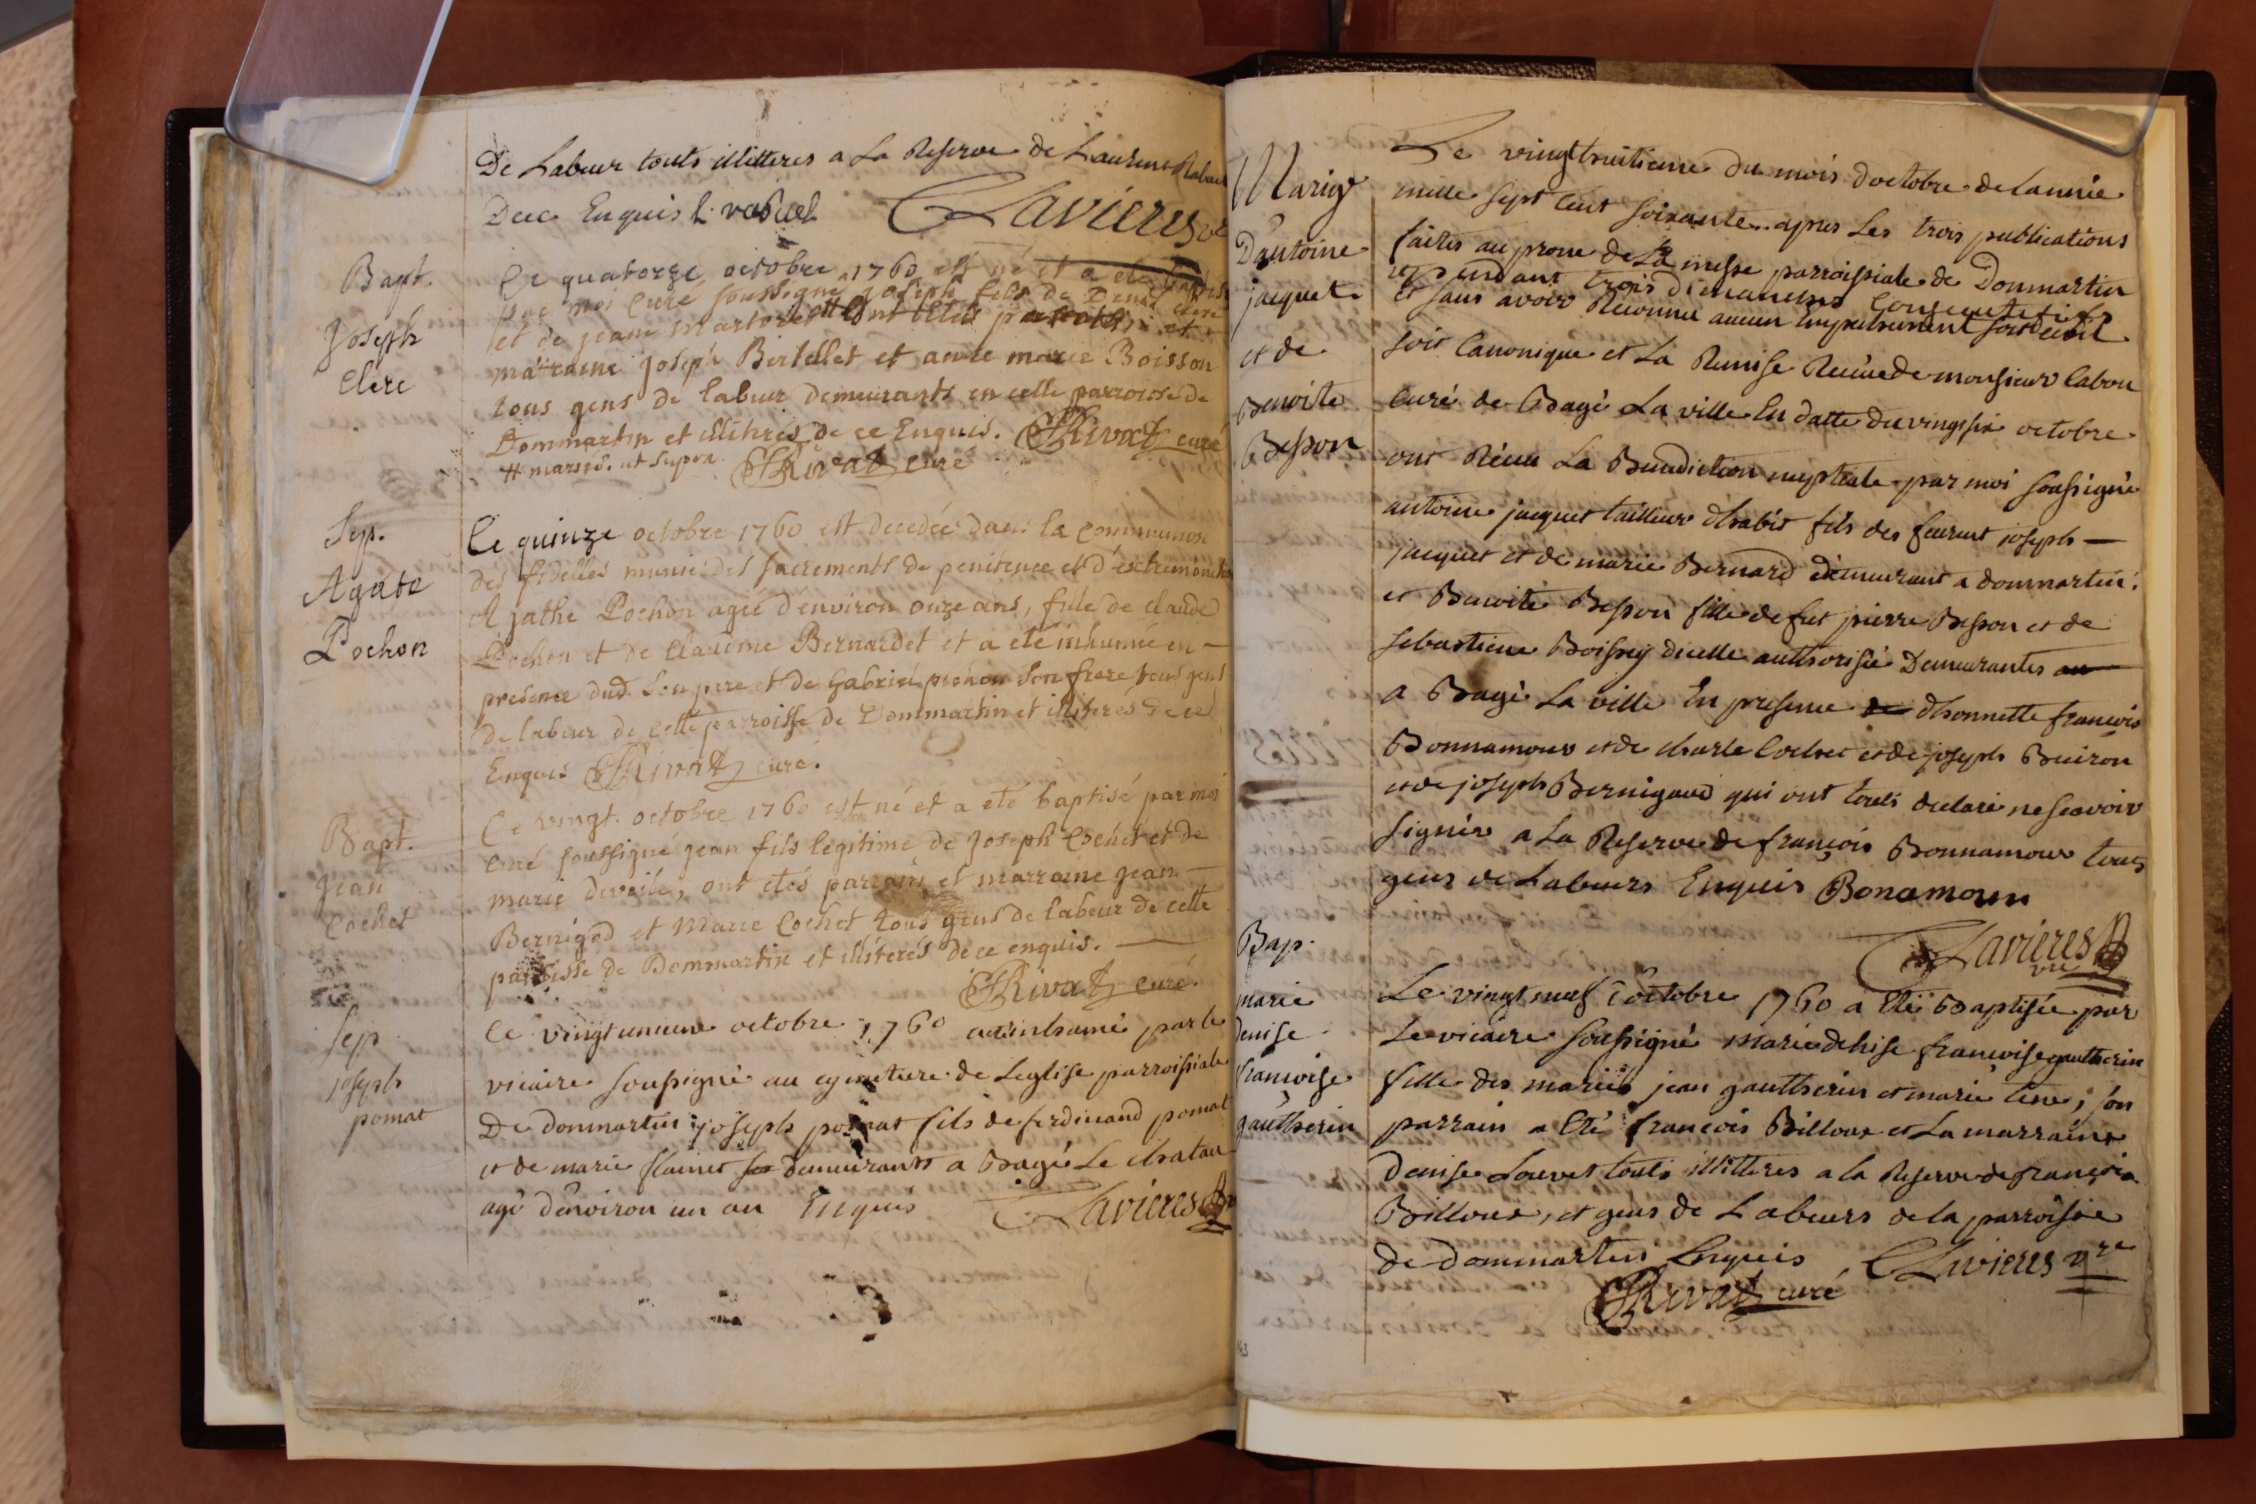 De Labeur touts illitteres a La Reserve de Laurent
Dece Enquis
Lavieres
Bapt.
Joseph
Clerc
Le quatorze octobre 1760 est né et a eté
par moi Curé soussigné joseph fils de Denis Clerc
et de jeane # ont etés parrain et
marraine joseph Bertellet et anne marie Boisson
tous gens de labeur demeurants en cette parroisse de
Dommartin et illitirés de ce Enquis. Rivat curé
# mariés. ut supra Rivat curé
Sep.
Agate
Pochon
Le quinze octobre 1760 est decedée dans la communion
des fidelles munie des sacrements de penitence et d'extremonction
Agathe Pochon agée d'environ onze ans, fille de claude
Pochon et de Claudine Bernardet et a eté inhumée en
presence dud. son pere et de Gabriel pochon son frere tous gens
de labeur de cette parroisse de Dommartin et illiterés de ce
Enquis Rivat curé.
Bapt.
Jean
Cochet
Le vingt. octobre 1760 est né et a eté baptisé par moi
curé soussigné jean fils legitime de Joseph Cochet et de
marie deveile, ont etés parrain et marraine jean
Bernigod et Marie Cochet tous gens de labeur de cette
parroisse de Dommartin et illiterés de ce enquis.
Rivat curé.
Sep
joseph
pomat
Le vingt unieme octobre 1760 a eté inhumé par le
vicaire soussigné au cymetiere de Leglise parroissiale
De dommartin joseph pomat fils de ferdinand pomat
et de marie flamet demeurants a Bagé Le chatau
agé d'environ un an Enquis Lavieres
Mariage
D'antoine
jacquet
et de
Benoite
Besson
Le vingthuitieme du mois doctobre de lannée
mille sept cent soixante apres Les trois publications
faites au prone de La messe parroissiale de Dommartin
pendant trois Dimanches consecutifs
et sans avoir Reconnu aucun Empechement soit civil
soit Canonique et La Remise Recüe de monsieur labon
curé de Bagé La ville En datte du vingt six octobre
ont Récus La Benediction nuptiale par moi soussigné
antoine jacquet tailleur dhabit fils des feurent joseph
jacquet et de marie Bernard demeurant a dommartin.
et Benoite Besson fille de fut pierre Besson et de
sebastiene Boissey dicelle authorisée Demeurantes
a Bagé La ville En presence dhonnette francois
Bonnamour et de charle Cochet et de joseph Buiron
et de joseph Bernigaud qui ont touts declaré ne scavoir
signér a La Reserve de françois Bonnamour touts
gens de Labeurs Enquis Bonamour
Lavieres
vre
Bap.
marie
denise
francoise
gautherin
Le vingt neuf octobre 1760 a Eté Baptisée par
Le vicaire soussigné marie denise francoise gautherin
fille des mariés jean gautherin et marie tene, son
parrain a Eté françois Billoux et La marraine
Denise Louvet touts illitteres a la Reserve de françois
Billoux, et gens de Labeurs de la parroisse
de dommartin Enquis Lavieres vre
Rivat curé